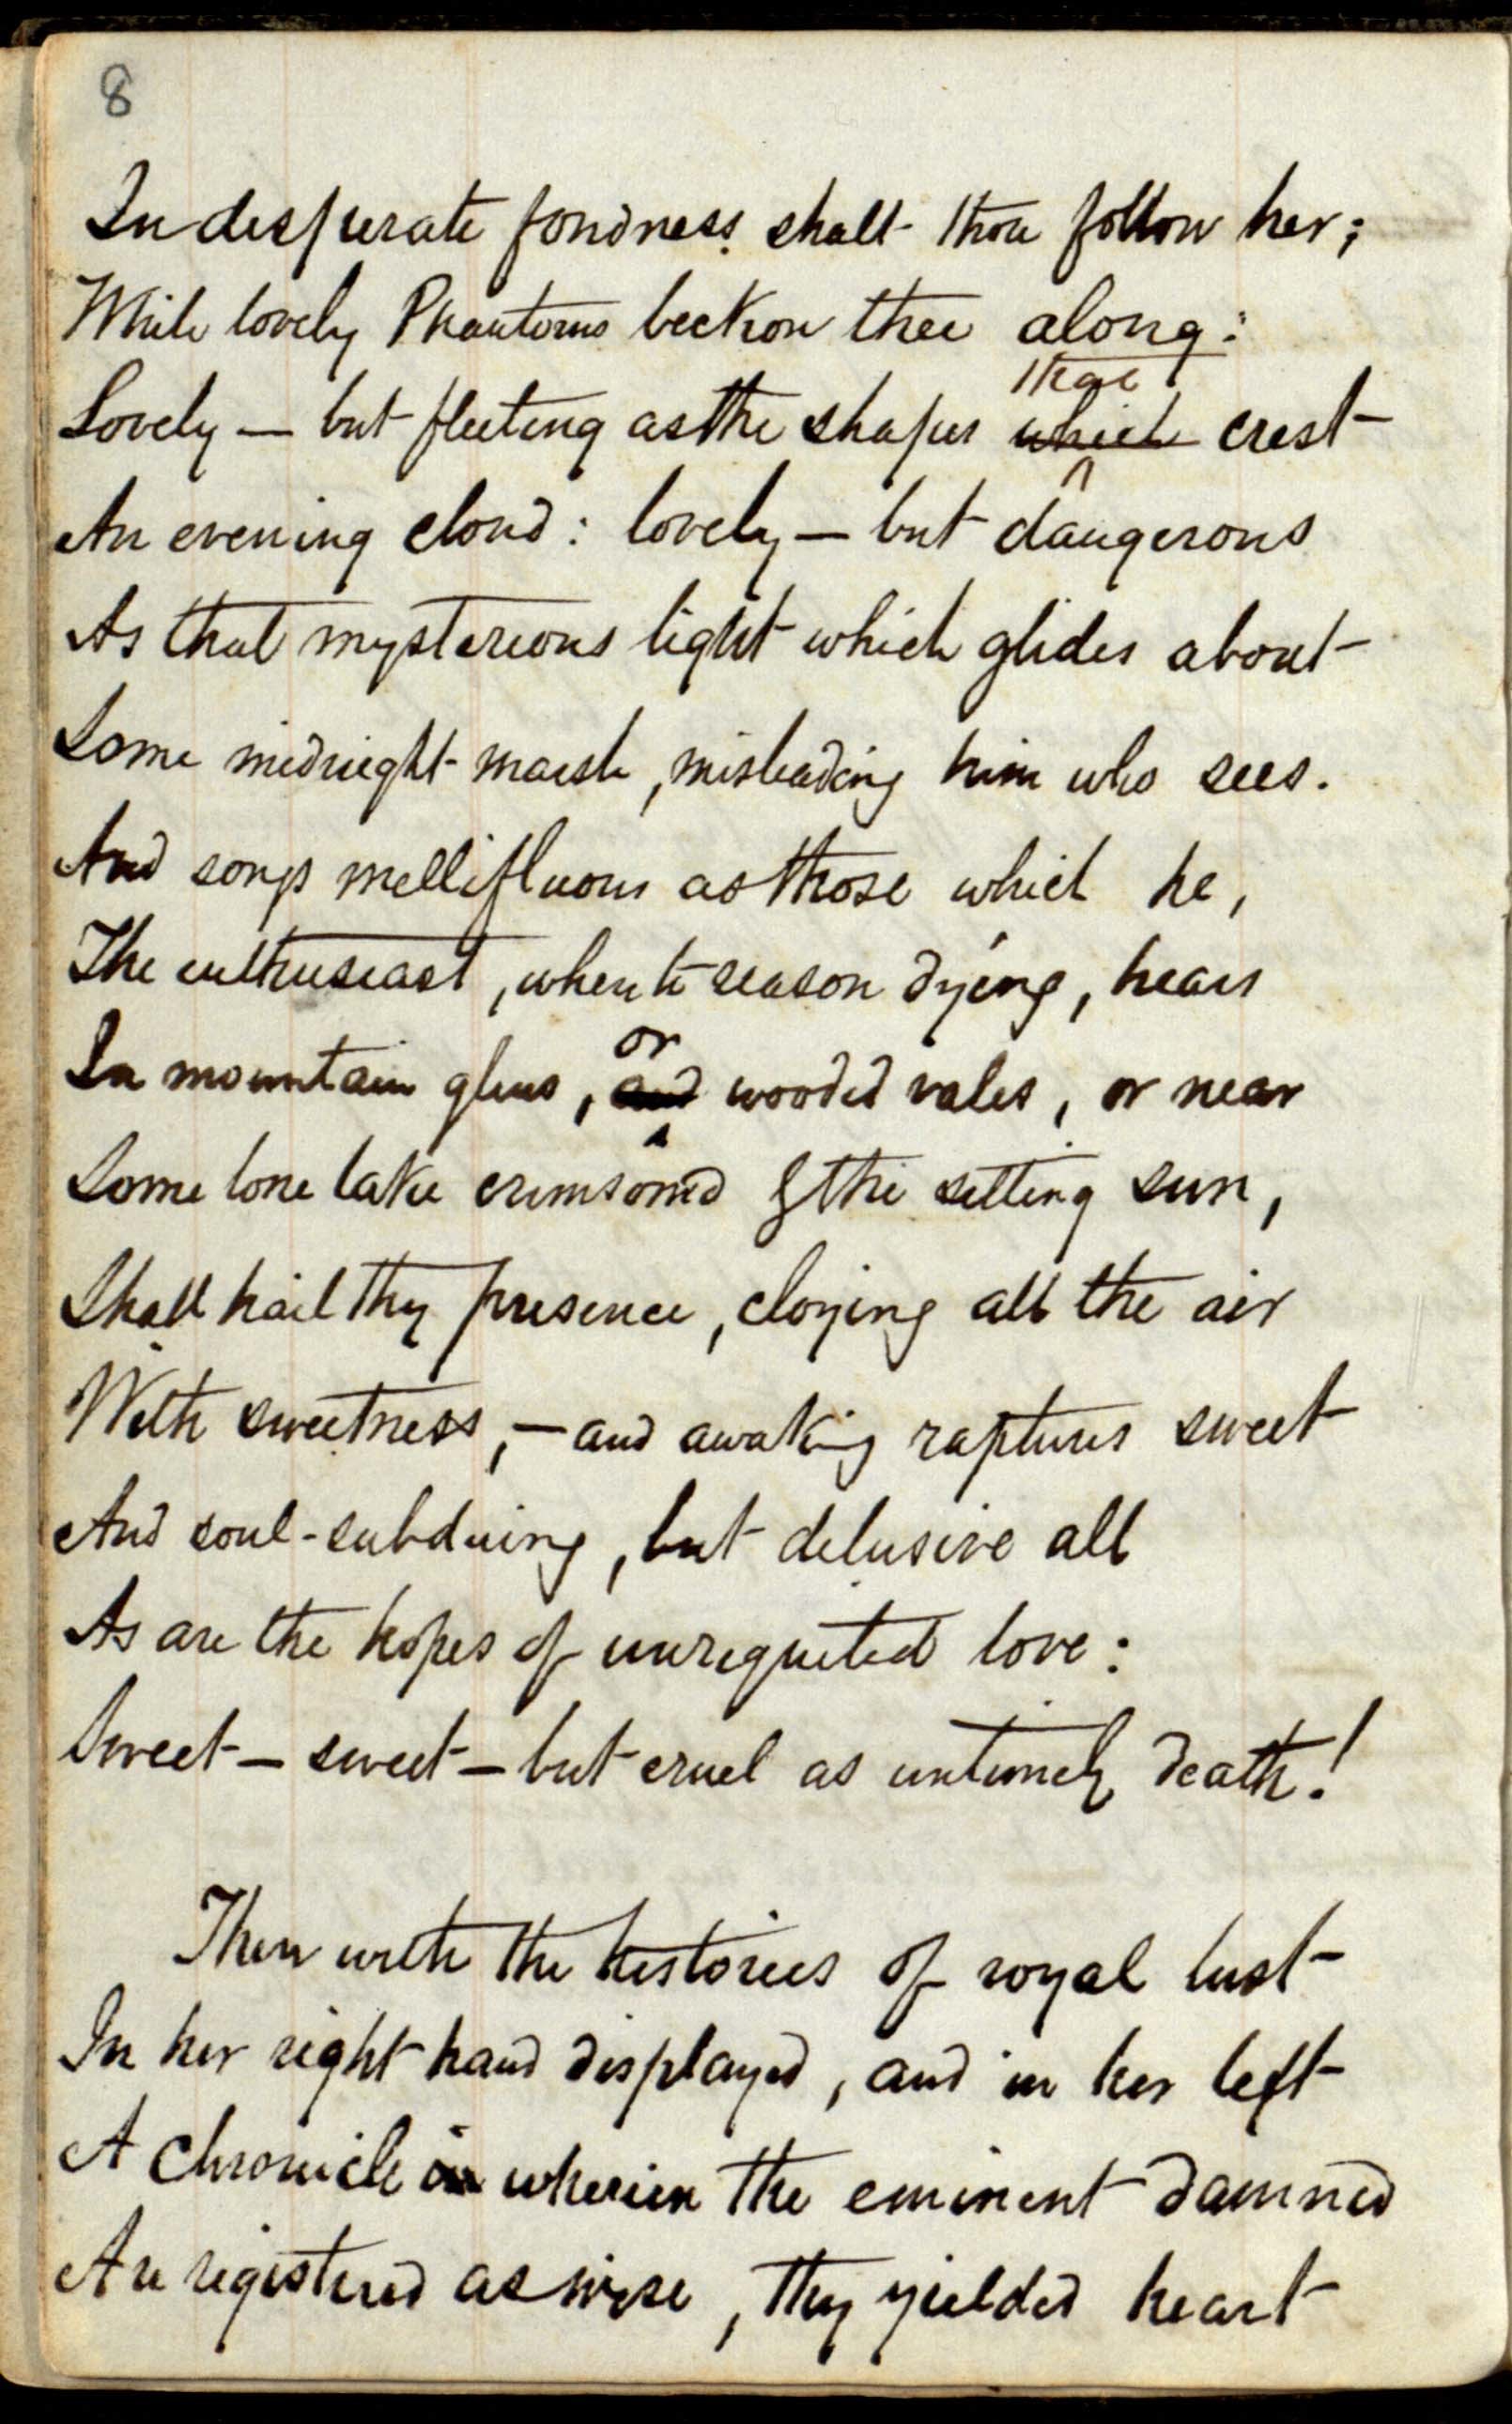 8
In desperate fondness shalt thou follow her;
While lovely Phantoms beckon thee along:
that
Lovely — but fleeting as the shapes which crest
An evening cloud: lovely — but dangerous
As that mysterious light which glides about
Some midnight marsh, misleading him who sees.
And songs mellifluous as those which he,
The enthusiast, when season dying, hears
or
In mountain glens, and wooded vales, or near
Some lone lake crimsoned the setting sun,
Shall hail thy presence, cloying all the air
With sweetness, — and awaking raptures sweet
And soul-subduing, but delusive all
As are the hopes of unrequited love:
Sweet — sweet — but cruel as untimely death!
Then with the histories of royal lust
In her right hand displayed, and in her left
A chronicle in wherein the eminent damned
Are registered as wise, thy yielded heart